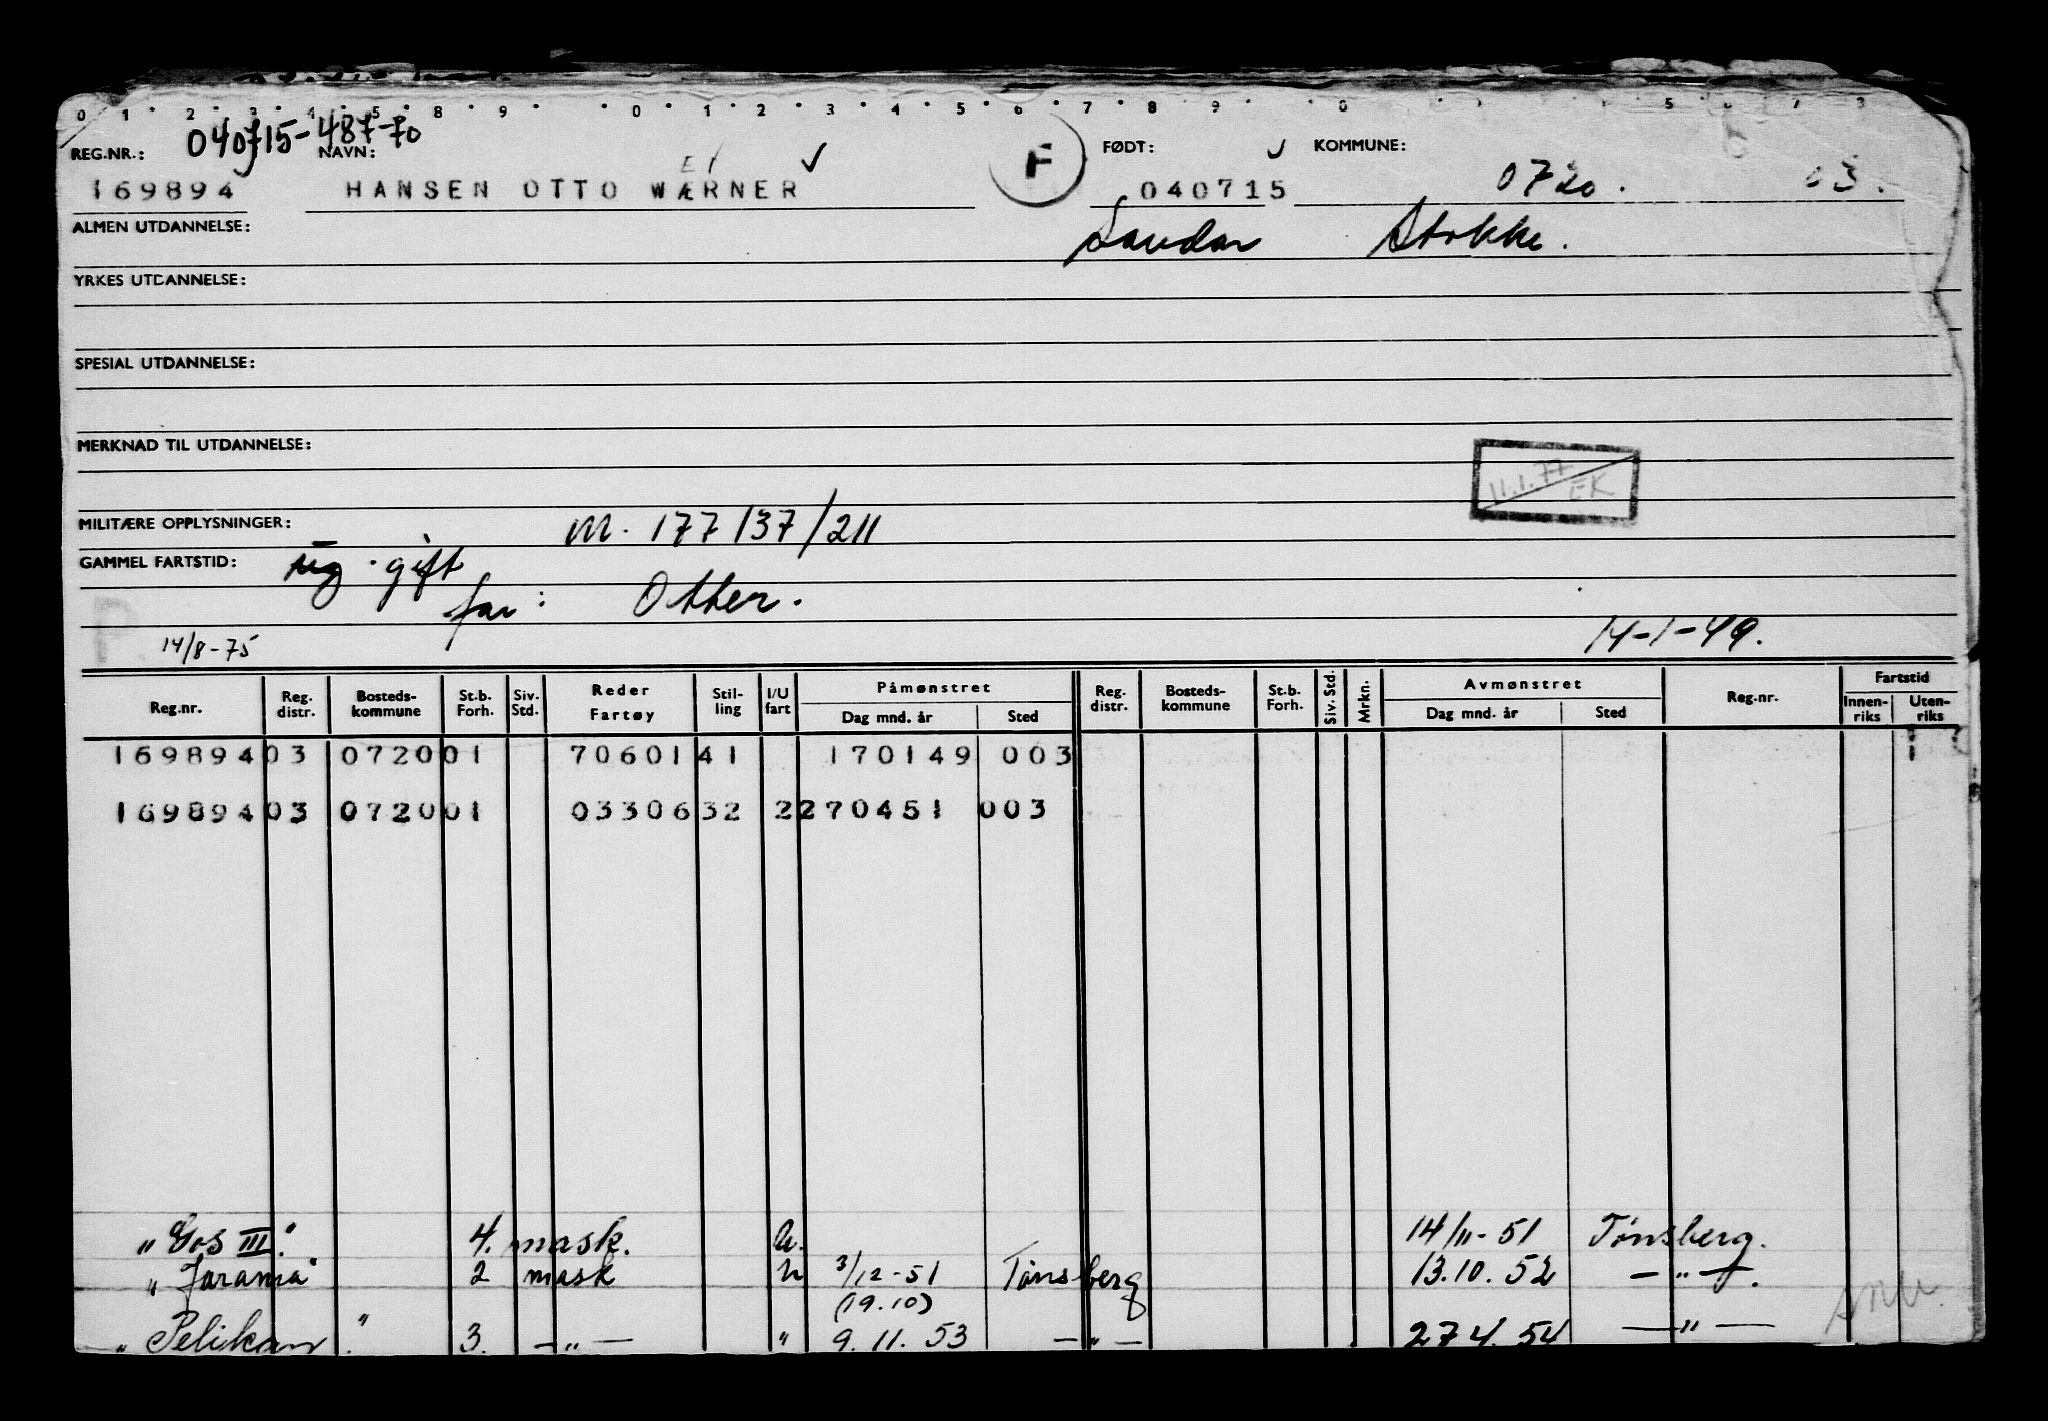 0 1 2 3 4 5 8 9 0 1 2 3 4 5 6 7 8 9 0 5 6 7 3
040715-487-70
REG.NR.: NAVN: FØDT: KOMMUNE:
E/ F 0720. 03.
169894 HANSEN OTTO WÆRNER 040715
ALMEN UTDANNELSE: Sandar Stokke.
YRKES UTDANNELSE:
SPESIAL UTDANNELSE:
MERKNAD TIL UTDANNELSE:
11.1.77 EK
MILITÆRE OPPLYSNINGER: M. 177137/211
GAMMEL FARTSTID: ug. gift
far: Otter.
P 14/8-75 14-1-49.
Reg.nr. Reg. distr. Bosteds- kommune St.b. Forh. Siv. Std. Reder Fartøy Stil- ling I/U fart Påmønstret Dag mnd. år Sted Reg. distr. Bosteds- kommune St.b. Forh. Siv. Std. Mrkn. Avmønstret Dag mnd. år Sted Reg.nr. Fartstid Innen- riks Uten- riks
169894 03 0720 01 70601 41 170149 003
169894 03 0720 01 03306 32 2 270451 003
"Gos III." 4. mask. U. 14/11-51 Tønsberg.
"Jarama" 2 mask U 3/12-51 Tønsberg 13.10.52 — " —.
(19.10)
"Pelikan" 3. — " — " 9.11.53 — " — 27.4.54 — " —